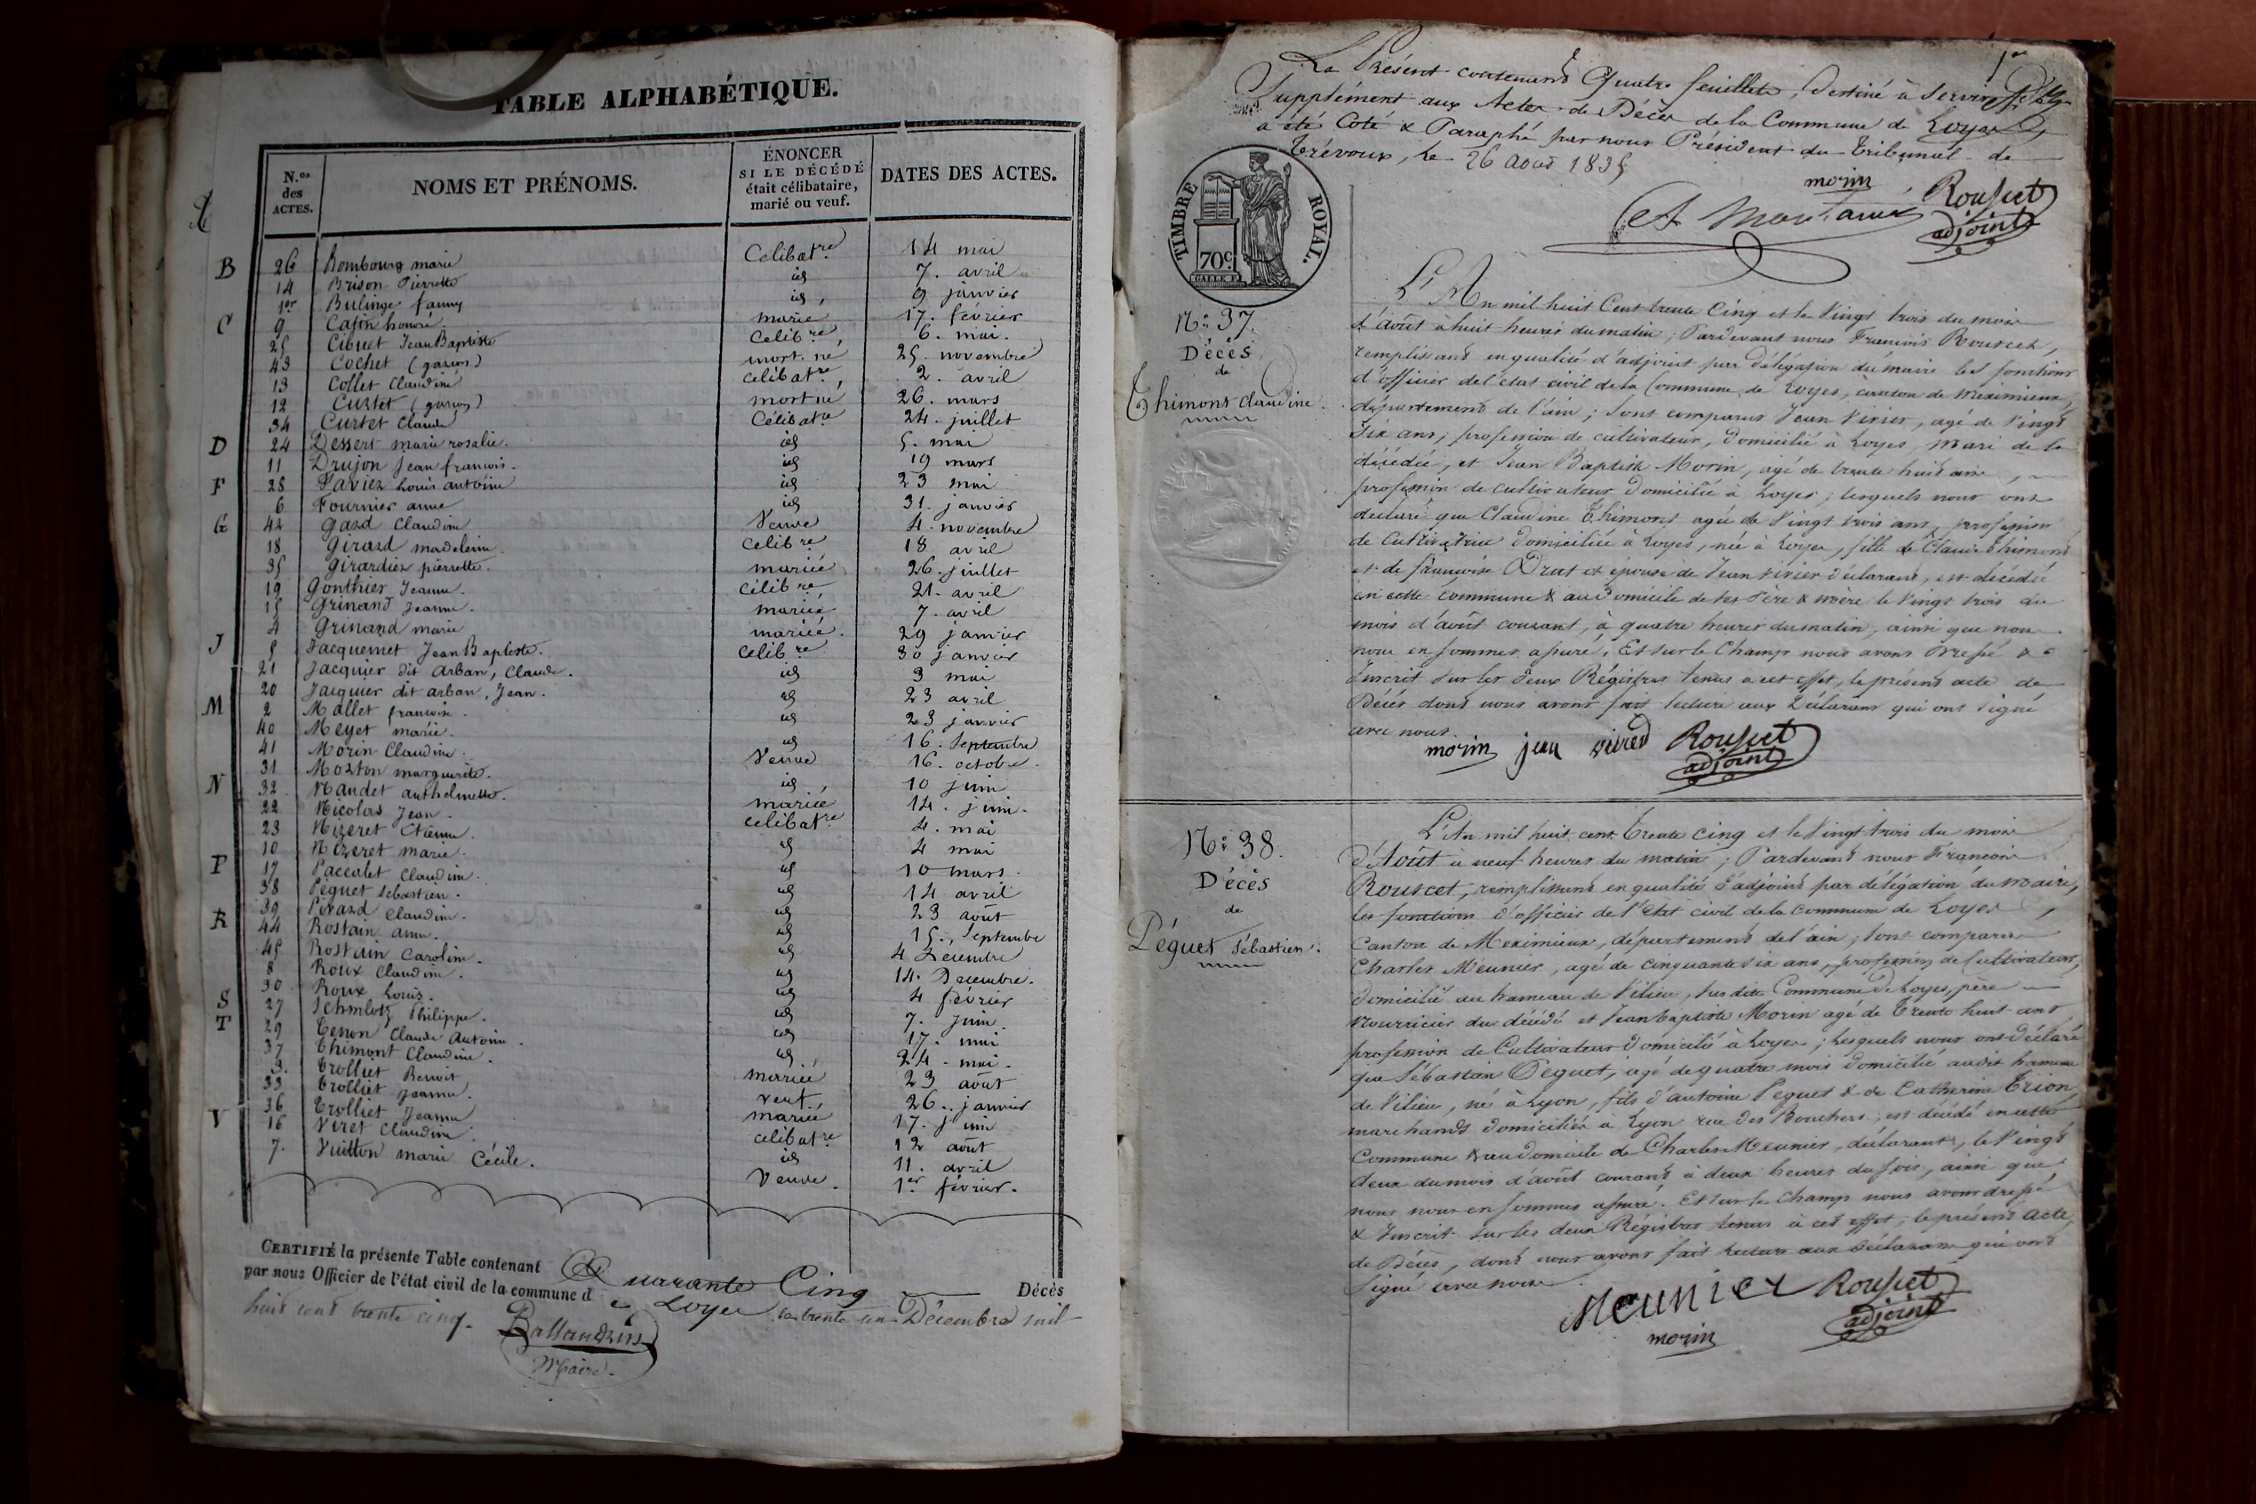 TABLE ALPHABÉTIQUE.
N.os des ACTES.
NOMS ET PRÉNOMS.
ÉNONCER SI LE DÉCÉDÉ était célibataire, marié ou veuf.
DATES DES ACTES.
B 26 Bombourg marie Celibatre 14 mai
14 Brison Pierrette id 7. avril
1er Bulinge fanny id, 9 janvier
C 9 Cajon honoré marié 17. février
25 Cibuet Jean Baptiste Celibre 6. mai.
43 Cochet (garçon) mort né 25. novembre
13 Collet Claudine célibatre, 2. avril
12 Curtet (garçon) mort né 26. mars
34 Curtet Claude Célibatre 24. juillet
D 24 Dessert marie rosalie. id 5. mai
11 Drujon jean francois. id 19 mars
F 28 Favier Louis antoine id 23 mai
6 Fournier anne id 31. janvier
G 42 Gard Claudine Veuve 4. novembre
18 Girard madeleine. Celibre 18 avril
35 Girardier pierrette. mariée 26. juillet
19 Gonthier Jeanne. célibre 21. avril
15 Grinand Jeanne. mariée 7. avril
4 Grinand marie mariée. 29 janvier
J 5 Jacquemet Jean Baptiste. Celibre 30 janvier
21 Jacquier dit Arban, Claude. id 3 mai
20 Jacquier dit arban, Jean. id 23 avril
M 2 Mallet francoise. id 23 janvier
40 Meyet marie. id 16. Septembre
41 Morin Claudine. Veuve 16. octobre.
31 Morton marguerite. id 10 juin
N 32 Nandet anthelmette. mariée 14. juin.
22 Nicolas Jean. celibatre 4. mai
23 Nizeret Etienne. id 4 mai
10 Nizeret marie. id 10 mars.
P 17 Paccalet Claudine. id 14 avril
38 Péguet sebastien. id 23 août
39 Pivard Claudine. id 15. Septembre
R 44 Rostain anne. id 4 Decembre
45 Rostain Caroline. id 14. Decembre.
8 Roux Claudine. id 4 février
30 Roux Louis. id 7. juin.
S 27 Schmlotz Philippe. id 17. mai
T 29 Tenon Claude Antoine. id 24. mai.
37 Thimont Claudine. mariée 23 août
3. Trolliet Benoit veuf, 26. janvier
33 Trolliet Jeanne. mariée 17. juin
36 Trolliet Jeanne celibatre 12 août
V 16 Viret Claudine. id 11. avril
7. Vuitton marie Cécile. Veuve. 1er février.
CERTIFIÉ la présente Table contenant Quarante Cinq Décès
par nous Officier de l'état civil de la commune de Loyes le trente un Décembre mil
huit cent trente cinq.
Ballandrin
Maire.
1er
Le Présent contenant Quatre feuillets, destiné à servir de
Supplément aux Actes de Décès de la Commune de Loyes
a été Coté & Paraphé par nous Président du Tribunal de
Trévoux, le 26 Aout 1835
morin Rousset
adjoint
TIMBRE ROYAL.
70c.
N.o 37.
Décès
de
Thimont Claudine.
L'An mil huit Cent trente Cinq et le Vingt trois du mois
d'août à huit heures du matin; Pardevant nous François Rousset,
remplissant en qualité d'adjoint par délégation du maire les fonctions
d'officier de l'état civil de la Commune de Loyes, canton de Meximieux,
département de l'ain; sont comparus Jean Virier, agé de Vingt
six ans, profession de cultivateur, domicilié à Loyes, mari de la
décédée, et Jean Baptiste Morin, agé de trente huit ans,
profession de cultivateur domicilié à Loyes; lesquels nous ont
déclaré que Claudine Thimont agée de Vingt trois ans, profession
de Cultivatrice domiciliée à Loyes, née à Loyes, fille de Claude Thimont
et de françoise Drut et épouse de Jean Virier déclarant, est décédée
en cette commune & au domicile de ses Père & mère le Vingt trois du
mois d'août courant, à quatre heures du matin, ainsi que nous
nous en sommes assuré. Et sur le Champ nous avons dressé &
Inscrit sur les deux Régistres tenus à cet effet, le présent acte de
Décès dont nous avons fait lecture aux Déclarans qui ont signé
avec nous.
morin jean virier Rousset
adjoint
N.o 38.
Décès
de
Péguet Sébastien.
L'An mil huit cent Trente Cinq et le Vingt trois du mois
d'Août à neuf heures du matin; Pardevant nous François
Rousset, remplissant en qualité d'adjoint par délégation du maire,
les fonctions d'officier de l'état civil de la commune de Loyes,
Canton de Meximieux, département de l'ain; sont comparus
Charles Meunier, agé de cinquante six ans, profession de Cultivateur,
domicilié au hameau de Vilieu, sus dite Commune de Loyes, père
nourricier du décédé et Jean baptiste Morin agé de Trente huit ans
profession de Cultivateur domicilié à Loyes; lesquels nous ont déclaré
que Sébastien Péguet, agé de quatre mois domicilié audit hameau
de Vilieu, né à Lyon, fils d'antoine Peguet & de Catherine Trion,
marchands domiciliés à Lyon rue des Bouchers, est décédé en cette
Commune & au domicile de Charles Meunier, déclarant, le Vingt
deux du mois d'août courant à deux heures du soir, ainsi que
nous nous en sommes assuré. Et sur le Champ nous avons dressé
& Inscrit sur les deux Régistres tenus à cet effet, le présent acte
de Décès, dont nous avons fait lecture aux Déclarans qui ont
signé avec nous.
Meunier Rousset
morin adjoint